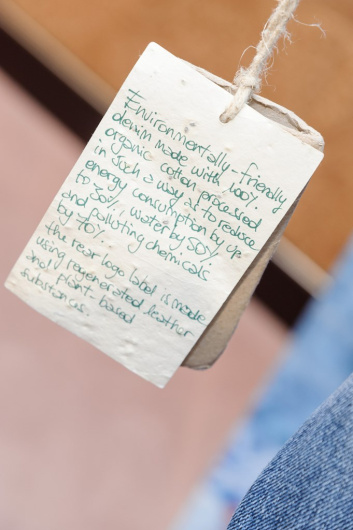 Environmentally-friendly
denim made with 100%
organic cotton processed
in such a way as to reduce
energy consumption by up
to 30%, water by 50%
and polluting chemicals
by 70%.
the rear logo label is made
using regenerated leather
and plant-based
substances.